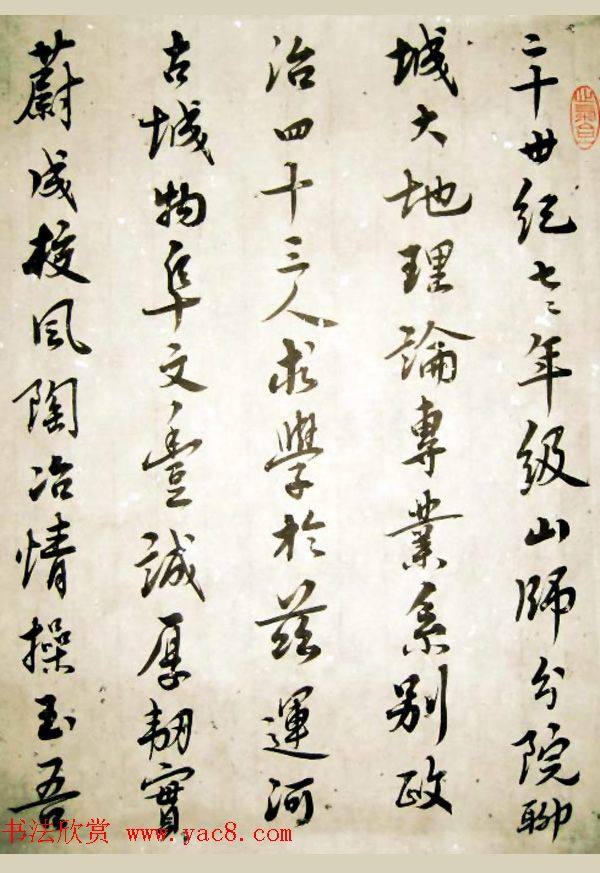 二十世紀七二年級山師分院聊
城大地理論專業系別政
治四十三人求學於茲運河
古城物阜文豐誠厚韌實
蔚成校風陶冶情操玉吾
书法欣赏 www.yac8.com